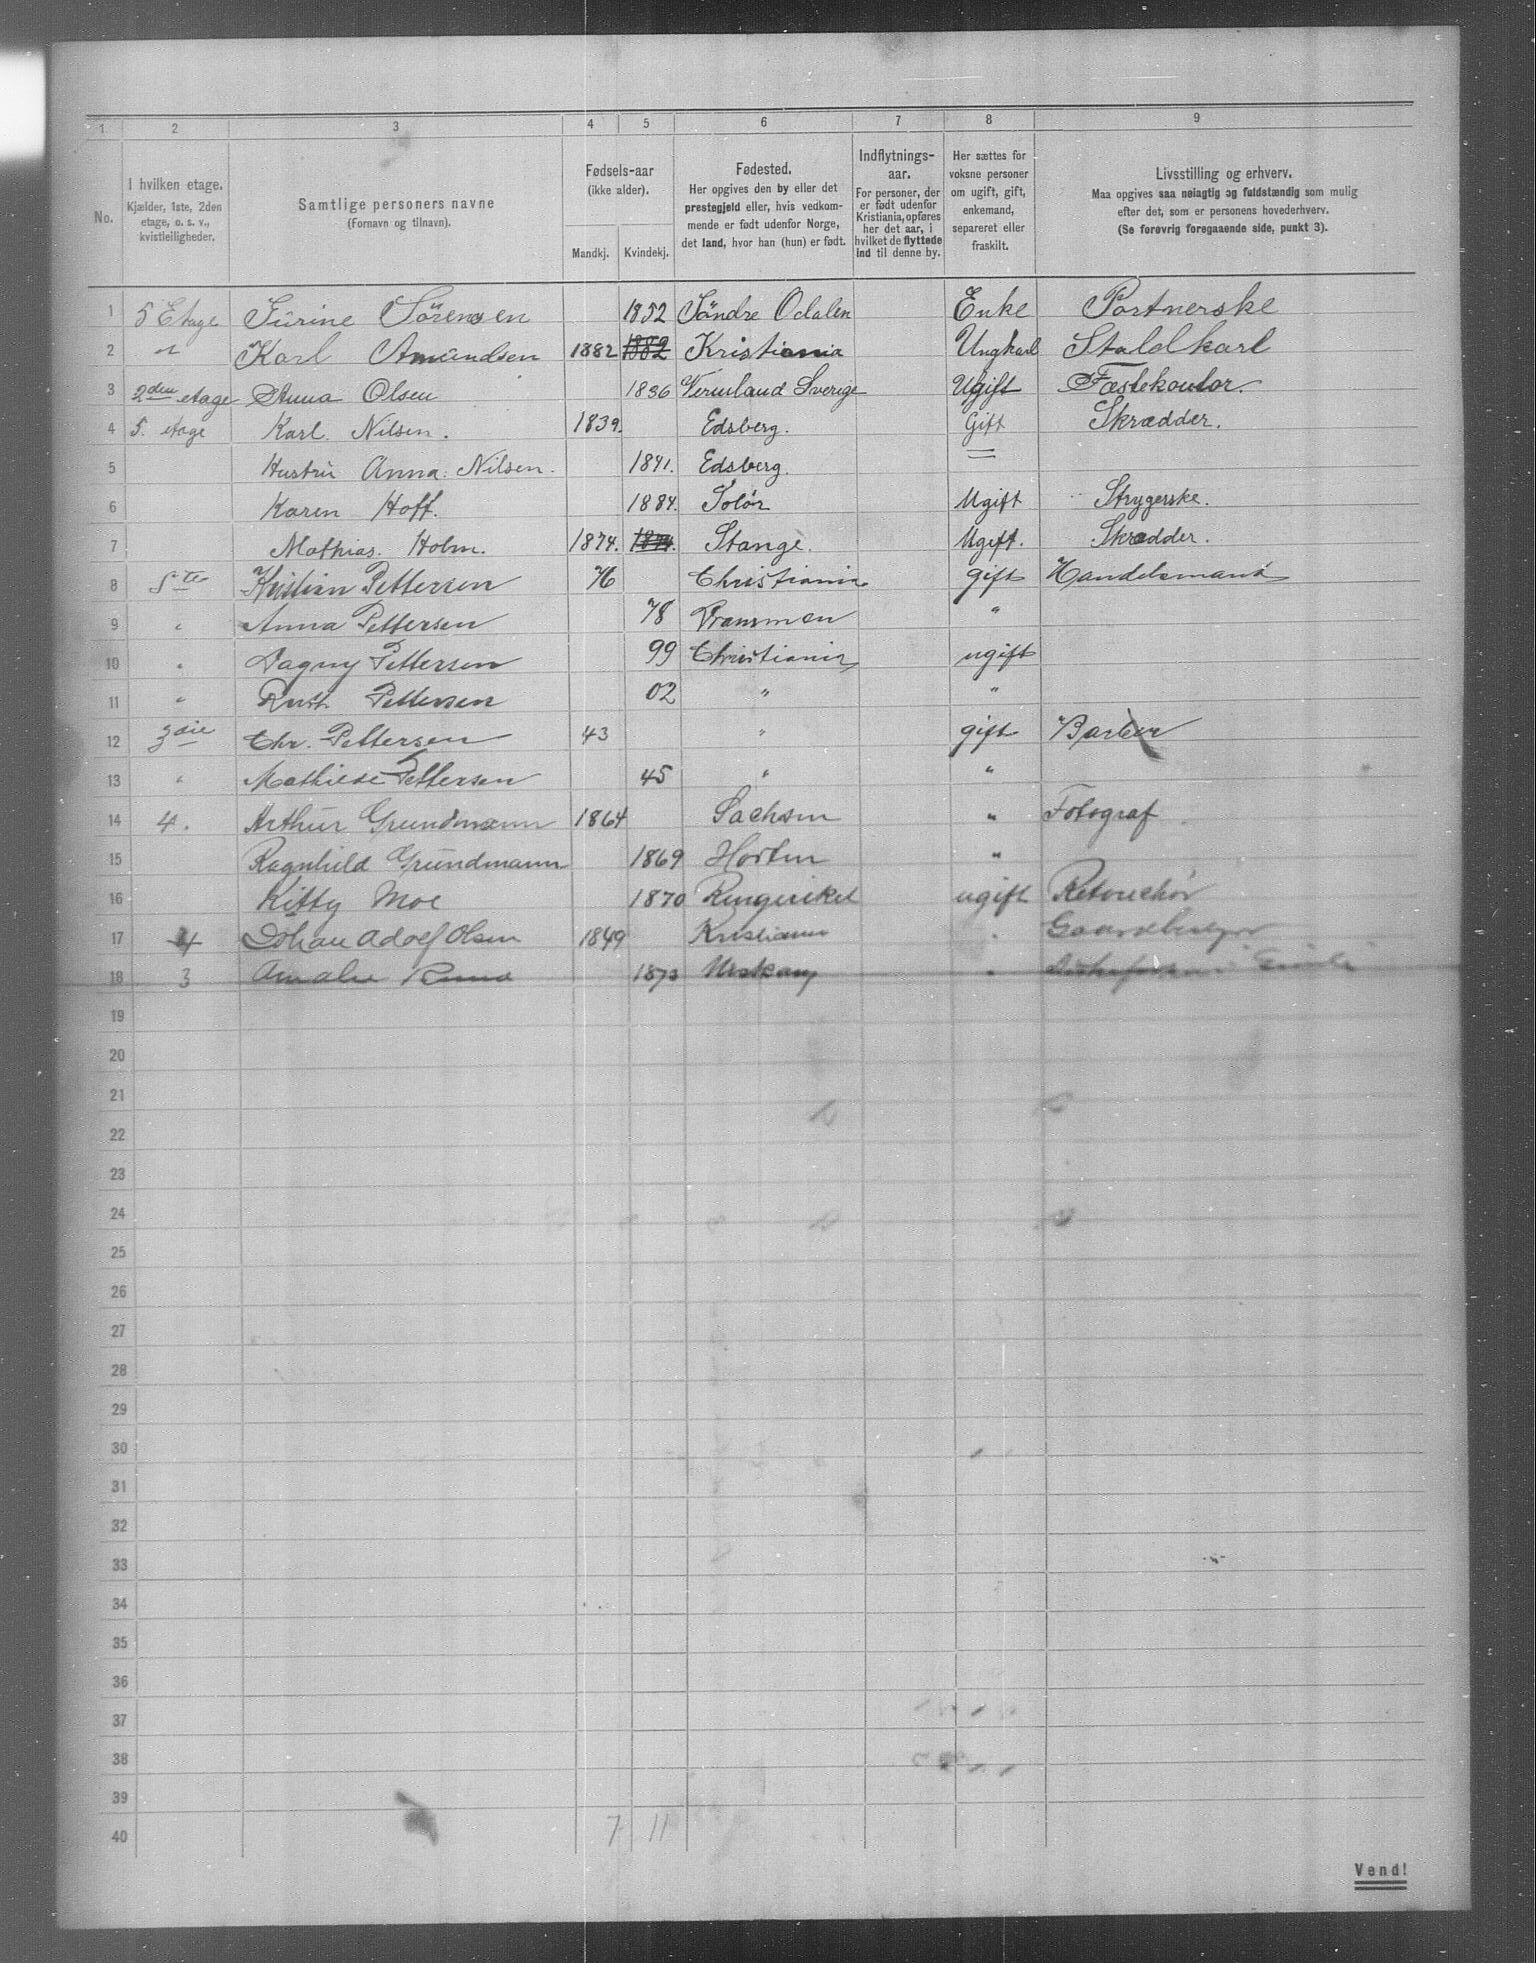 1 2 3 4 5 6 7 8 9
No.
I hvilken etage.
Kjælder, 1ste, 2den
etage, o. s. v.,
kvistleiligheder.
Samtlige personers navne
(Fornavn og tilnavn).
Fødsels-aar
(ikke alder).
Mandkj. Kvindekj.
Fødested.
Her opgives den by eller det
prestegjeld eller, hvis vedkom-
mende er født udenfor Norge,
det land, hvor han (hun) er født.
Indflytnings-
aar.
For personer, der
er født udenfor
Kristiania, opføres
her det aar, i
hvilket de flyttede
ind til denne by.
Her sættes for
voksne personer
om ugift, gift,
enkemand,
separeret eller
fraskilt.
Livsstilling og erhverv.
Maa opgives saa nøiagtig og fuldstændig som mulig
efter det, som er personens hovederhverv.
(Se forøvrig foregaaende side, punkt 3).
1 5 Etage Jürine Sörensen 1852 Söndre Odalen Enke Portnerske
2 " Karl Amundsen 1882 1882 Kristiania Ungkarl Staldkarl
3 2den etage Anna Olsen 1836 Vermland Sverige Ugift Fæstekontor.
4 5. etage Karl. Nilsen. 1839. Edsberg. Gift Skrædder.
5 Hustru Anna. Nilsen. 1841. Edsberg. =
6 Karen Hoff. 1884. Solör Ugift Strygerske.
7 Mathias. Holm. 1874. 1874. Stange. Ugift. Skrædder.
8 5te Kristian Pettersen 76 Christiania gift Handelsmand
9 " Anna Pettersen 78 Drammen "
10 " Dagny Pettersen 99 Christiania ugift
11 " Ruth Pettersen 02 " "
12 3die Chr. Pettersen 43 " gift Barber
13 " Mathilde Pettersen 45 " "
14 4. Arthur Grundmann 1864 Sachsen " Fotograf
15 Ragnhild Grundmann 1869 Horten "
16 Kitty Moe 1870 Ringeriket ugift Retouchör
17 4 Johan Adolf Olsen 1849 Kristiania " Gaardbestyrer
18 3 Amalie 1873 Urskoug "
19
20
21
22
23
24
25
26
27
28
29
30
31
32
33
34
35
36
37
38
39
40 7 11
Vend!